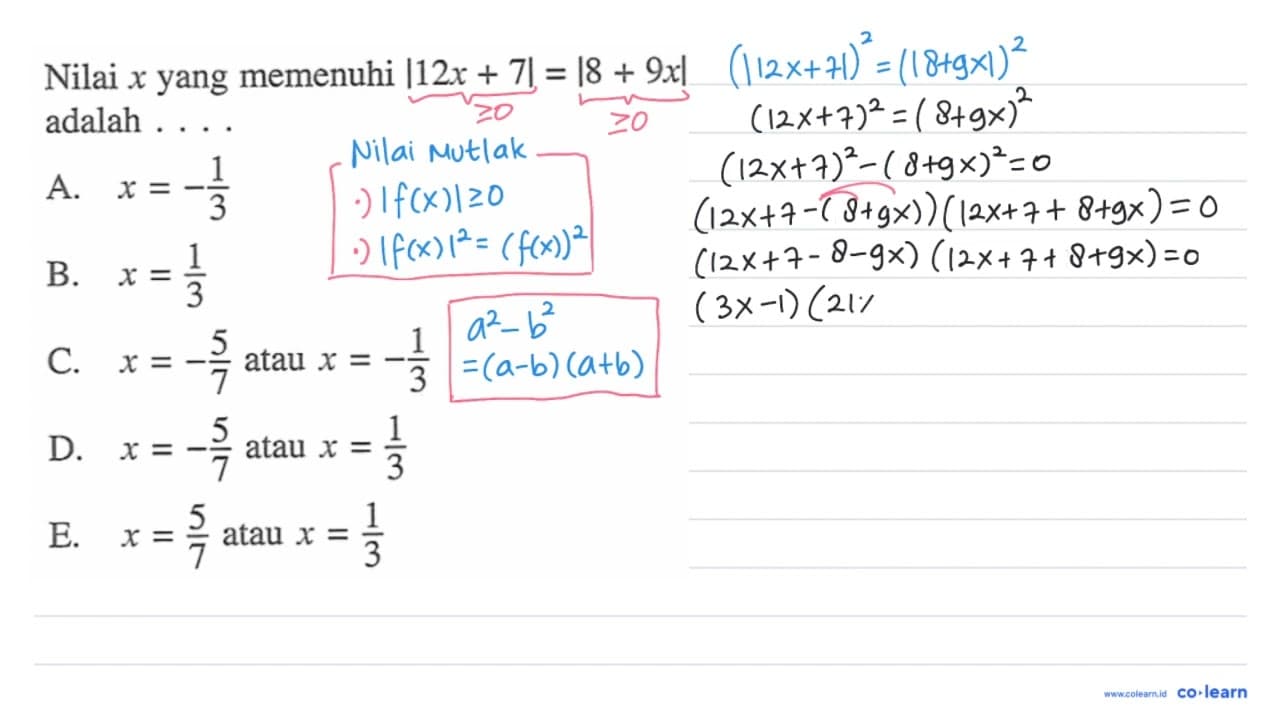 Nilai x yang memenuhi |12x + 7| = |8 + 9x|
≥0 ≥0
adalah . . . .
A. x = -1/3
B. x = 1/3
C. x = -5/7 atau x = -1/3
D. x = -5/7 atau x = 1/3
E. x = 5/7 atau x = 1/3
Nilai Mutlak
·) |f(x)| ≥ 0
·) |f(x)|² = (f(x))²
a² - b²
= (a-b) (a+b)
(|12x+7|)² = (|8+9x|)²
(12x+7)² = (8+9x)²
(12x+7)² - (8+9x)² = 0
(12x+7-(8+9x)) (12x+7+8+9x) = 0
(12x+7-8-9x) (12x+7+8+9x) = 0
(3x-1) (21
www.colearn.id co·learn